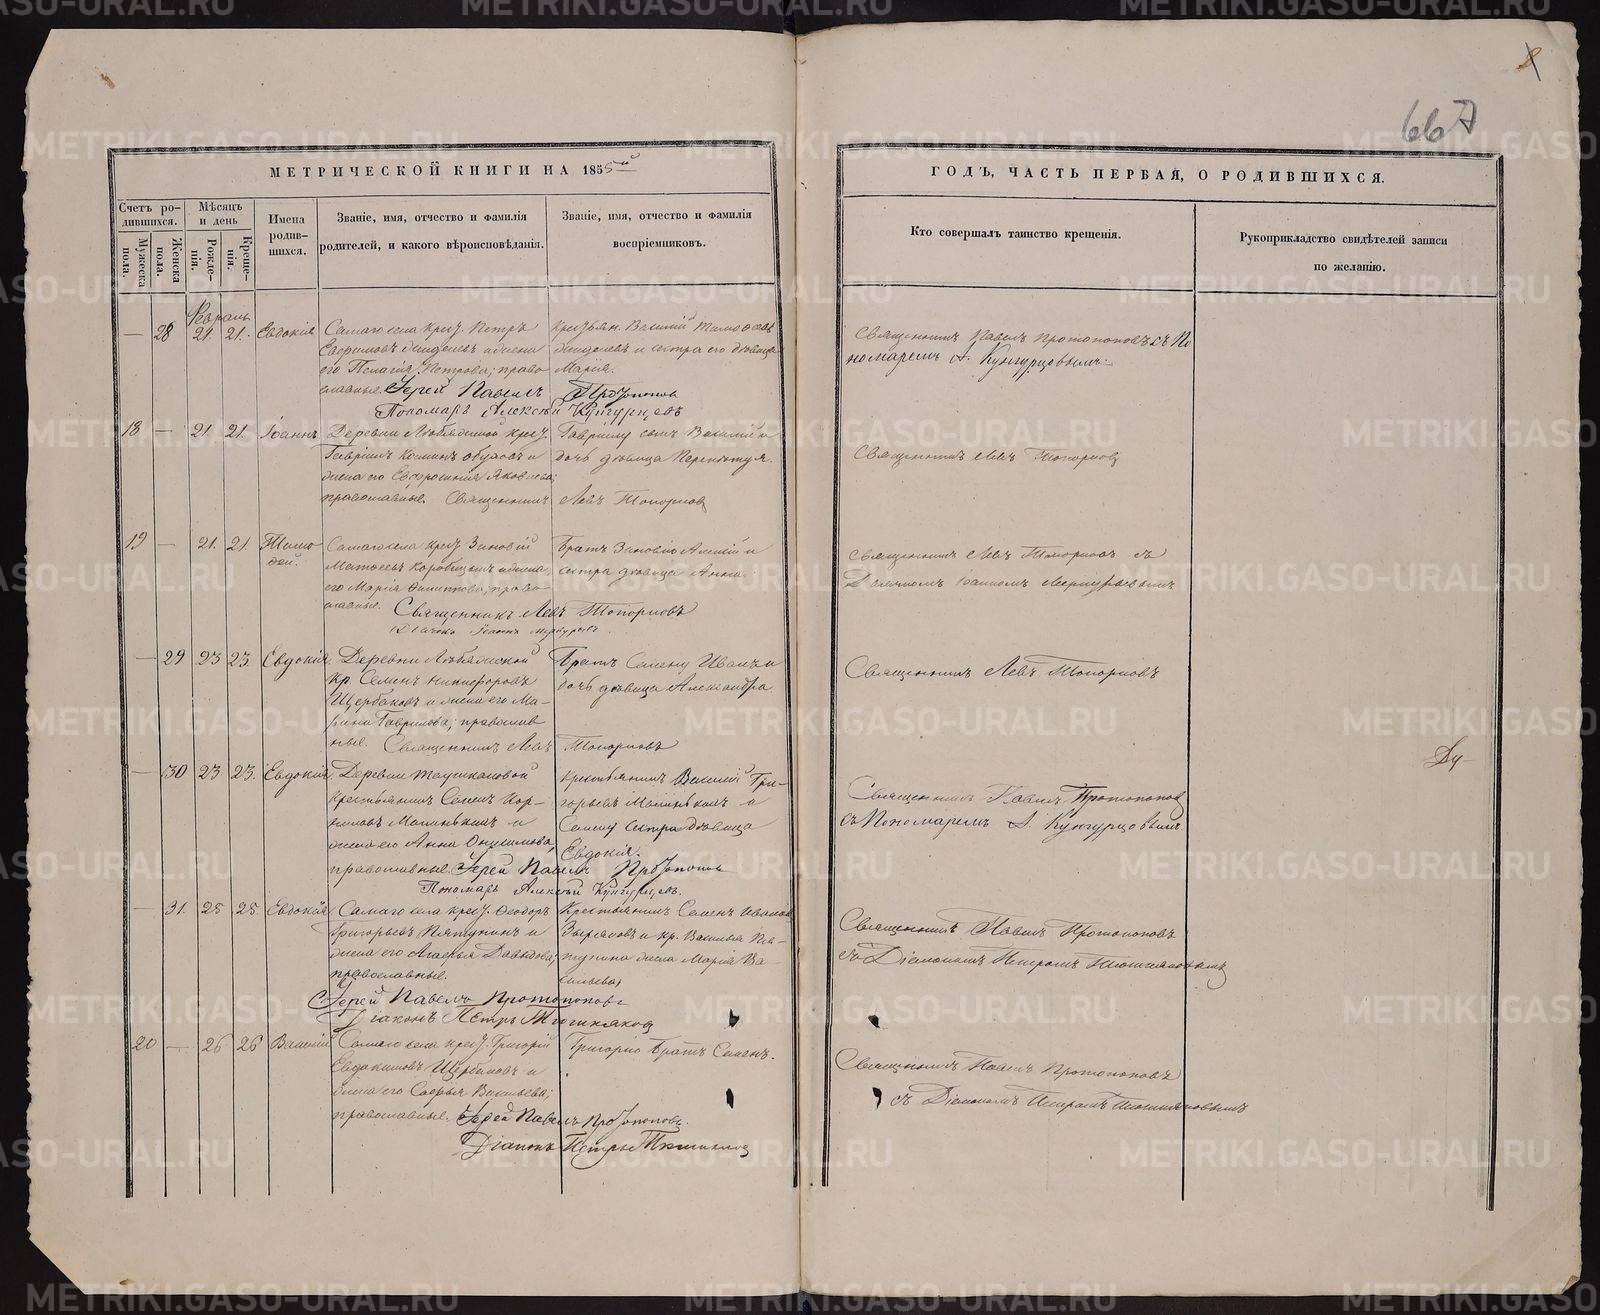 667
МЕТРИЧЕСКОЙ КНИГИ НА 1855й
ГОДЪ, ЧАСТЬ ПЕРВАЯ, О РОДИВШИХСЯ.
Счетъ ро-
дившихся.
Мужеска
пола.
Женска
пола.
Мѣсяцъ
и день
Рожде-
нія.
Креще-
нія.
Имена
родив-
шихся.
Званіе, имя, отчество и фамилія
родителей, и какого вѣроисповѣданія.
Званіе, имя, отчество и фамилія
воспріемниковъ.
Кто совершалъ таинство крещенія.
Рукоприкладство свидѣтелей записи
по желанію.
Февраль
— 28 21. 21. Евдокія
Самаго села крест. Петръ
его Пелагія Петрова; право
славные. Іерей Павелъ Протопопов
Пономарь Алексей Кунгурцевъ
сестра его дѣвица
Марія.
Священникъ Павелъ Протопоповъ съ По
номаремъ А. Кунгурцовымъ.
18 — 21. 21. Іоаннъ
Деревни крест.
жена его Евфросинія Яковлева;
православные. Священникъ Левъ Топорковъ
Гаврилу сынъ Василий и
дочь дѣвица
Священникъ Левъ Топорковъ
19 — 21. 21. Тимо
фей.
Самаго села крест. Зиновій
его Марія Филиппова; право
славные. Священникъ Левъ Топорковъ
Дьячокъ Іоаннъ
Братъ Зиновію Алексій и
сестра дѣвица Анна.
Священникъ Левъ Топорковъ съ
Дьячкомъ Іоанномъ
— 29 23 23. Евдокія.
Деревни
кр. Семенъ Никифоровъ
Щербаковъ и жена его Ма-
рина Гаврилова; православ
ные. Священникъ Левъ Топорковъ
Братъ Семену Иванъ и
дочь дѣвица Александра
Священникъ Левъ Топорковъ
— 30 23 23. Евдокія.
Деревни
крестьянинъ Семенъ Кор-
ниловъ и
жена его Анна Онисимова;
православные. Іерей Павелъ Протопопов
Пономарь Алексѣй Кунгурцевъ.
крестьянинъ Василій Гри-
горьевъ и
Семену сестра дѣвица
Евдокія.
Священникъ Павелъ Протопопов
съ Пономаремъ А. Кунгурцовымъ
— 31. 25 25. Евдокія.
Самаго села крест. Ѳеодоръ
Григорьевъ Пятунинъ и
жена его Агафья Давыдова;
православные.
Іерей Павелъ Протопоповъ
Діаконъ Петръ
Крестьянинъ Семенъ Иванов
Зыряновъ и кр. Василья Пя-
тунина жена Марія Ва-
сильева
Священникъ Павелъ Протопоповъ
съ Діакономъ Петромъ
20 — 26 26 Василій
Самаго села крест. Григорій
Евдокимовъ Щербаковъ и
жена его Софья Васильева;
православные. Іерей Павелъ Протопоповъ.
Діаконъ Петръ
Григорію братъ Семенъ.
Священникъ Павелъ Протопоповъ
съ Діакономъ Петромъ
METRIKI.GASO-URAL.RU